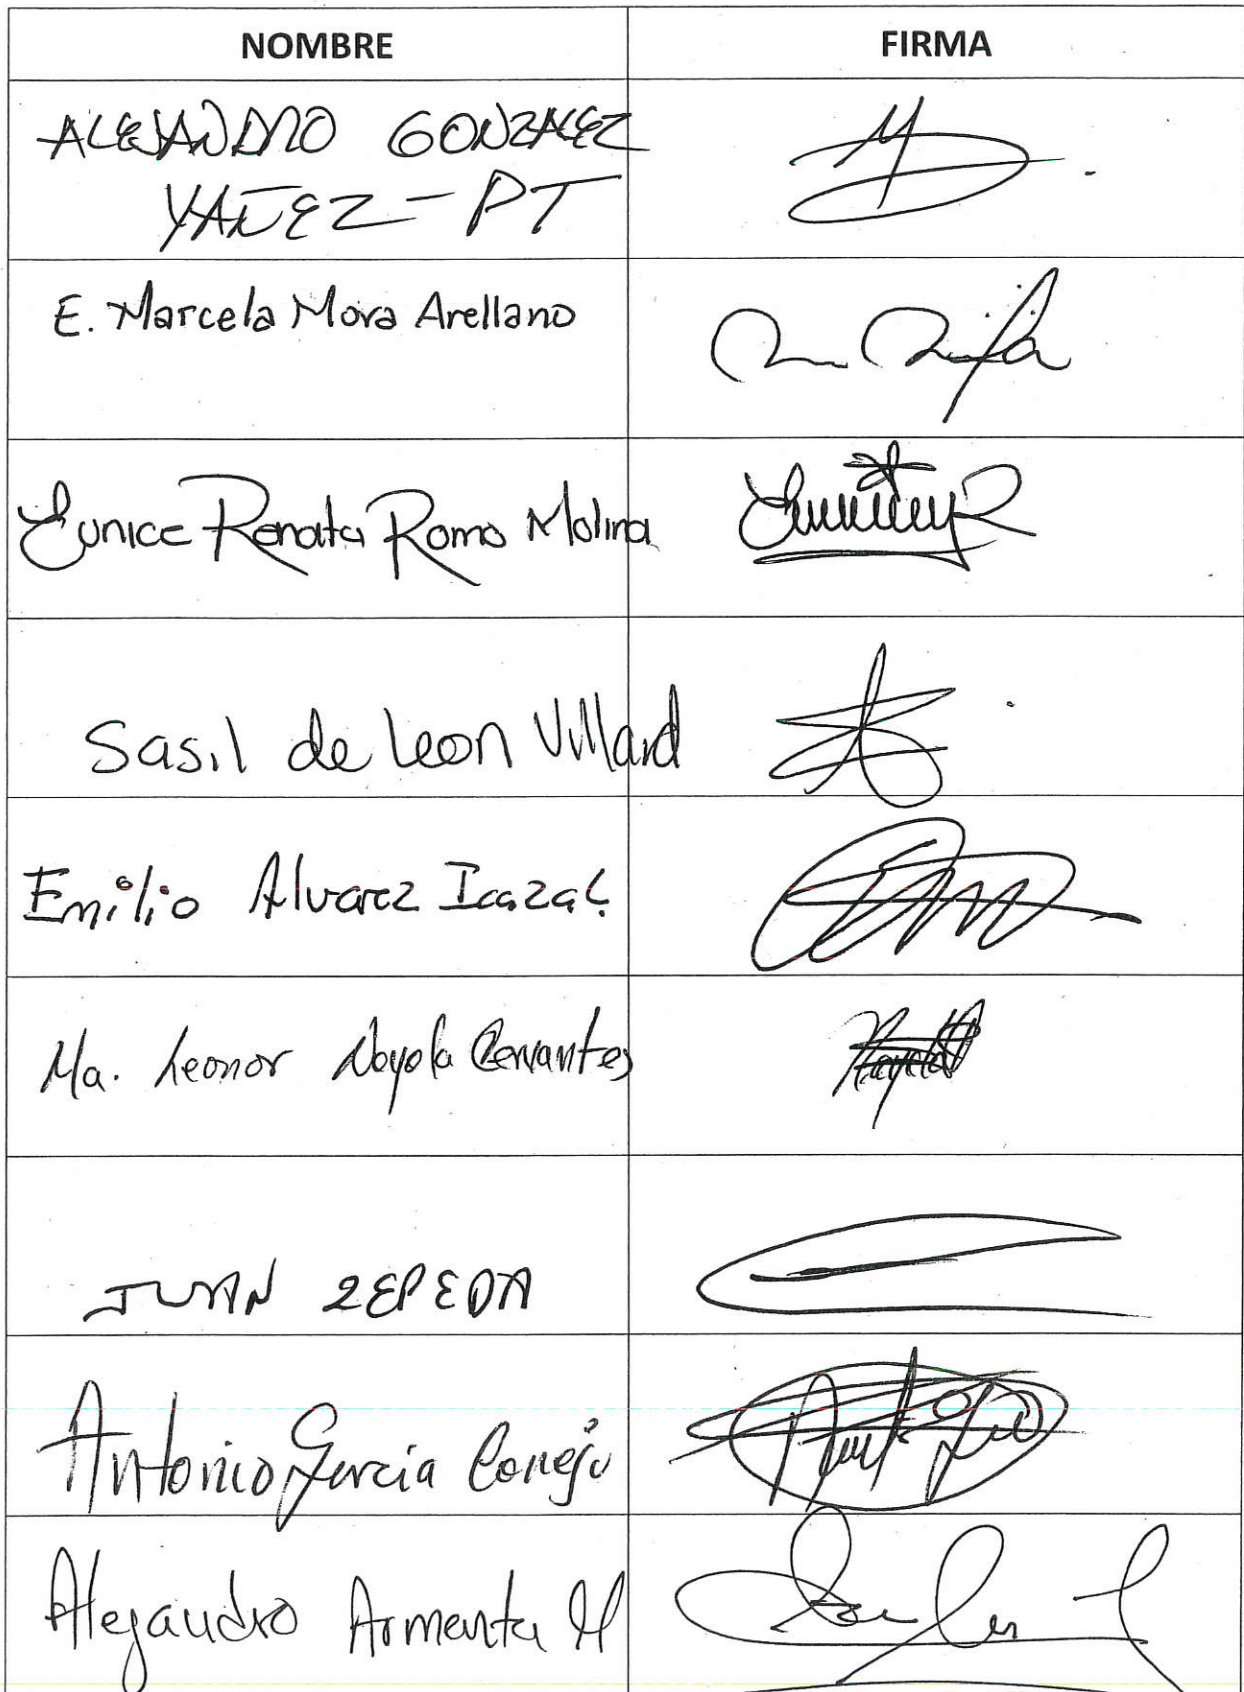 NOMBRE FIRMA
ALEJANDRO GONZALEZ
YAÑEZ - PT
E. Marcela Mora Arellano
Eunice Renata Romo Molina
Sasil de Leon Villard
Emilio Alvarez Icaza L.
Ma. Leonor Noyola Cervantes
JUAN ZEPEDA
Antonio García Conejo
Alejandro Armenta M